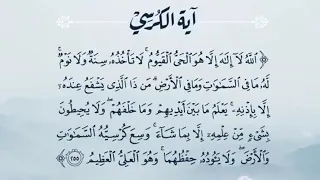 آية الكرسي
﴿ اللَّهُ لَآ إِلَٰهَ إِلَّا هُوَ الْحَىُّ الْقَيُّومُ ۚ لَا تَأْخُذُهُ سِنَةٌ وَلَا نَوْمٌ ۚ
لَهُ مَا فِى السَّمَٰوَٰتِ وَمَا فِى الْأَرْضِ ۗ مَن ذَا الَّذِى يَشْفَعُ عِندَهُ
إِلَّا بِإِذْنِهِ ۚ يَعْلَمُ مَا بَيْنَ أَيْدِيهِمْ وَمَا خَلْفَهُمْ ۖ وَلَا يُحِيطُونَ
بِشَىْءٍ مِّنْ عِلْمِهِ إِلَّا بِمَا شَآءَ ۚ وَسِعَ كُرْسِيُّهُ السَّمَٰوَٰتِ
وَالْأَرْضَ ۖ وَلَا يَـُٔودُهُ حِفْظُهُمَا ۚ وَهُوَ الْعَلِىُّ الْعَظِيمُ ٢٥٥ ﴾